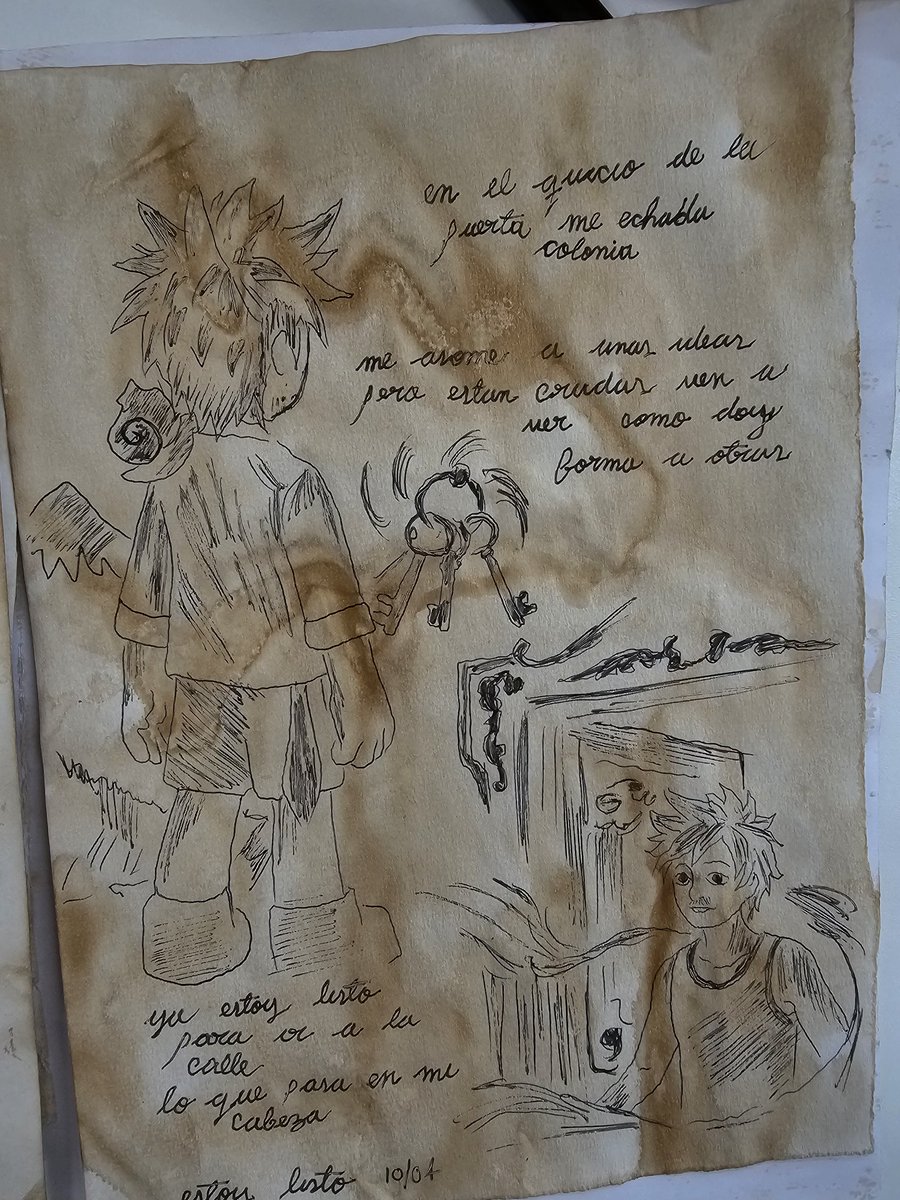 en el quicio de la
puerta me echaba
colonia
me asome a unas ideas
pero estan crudas ven a
ver como doy
forma a otras
ya estoy listo
para ir a la
calle
lo que pasa en mi
cabeza
estoy listo 10/04